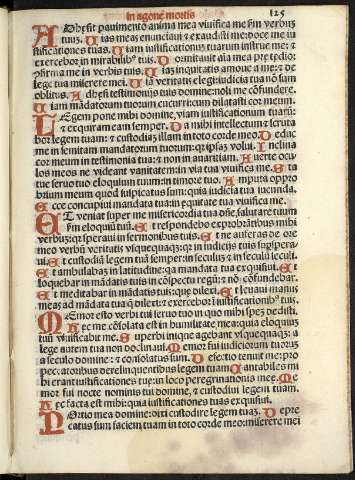 in agone mortis 125
Adhesit pauimento anima mea viuifica me scdm verbuȝ
tuuȝ. Uias meas enunciaui ⁊ exaudisti me: doce me iu
stificationes tuas. Uiam iustificationuȝ tuarum instrue me: ⁊
exercebor in mirabilibꝰ tuis. Dormitauit aīa mea pre tedio:
ꝯfirma me in verbis tuis. Uiaȝ iniquitatis amoue a me: ⁊ de
lege tua miserere mei. Uiā veritatis elegi: iudicia tua nō sum
oblitus. Adhesi testimonijs tuis domine: noli me cōfundere.
Uiam mādatorum tuorum cucurri: cum dilatasti cor meum.
Legem pone mihi domine, viam iustificationum tuarū:
⁊ exquiram eam semper. Da mihi intellectum ⁊ scruta
bor legem tuam: ⁊ custodiaȝ illam in toto corde meo. Deduc
me in semitam mandatorum tuorum: qꝛ ipsaȝ volui. Inclina
cor meum in testimonia tua: ⁊ non in auaritiam. Auerte ocu
los meos ne videant vanitatem: in via tua viuifica me. Sta
tue seruo tuo eloquium tuum: in timore tuo. Amputa oppro
brium meum quod suspicatus sum: quia iudicia tua iucunda.
Ecce concupiui mandata tua: in equitate tua viuifica me.
Et veniat super me misericordia tua dn̄e, salutare tuum
scdm eloquiū tuū. Et respondebo exprobrātibus mihi
verbuȝ: qꝛ speraui in sermonibus tuis. Et ne auferas de ore
meo verbū veritatis vsquequaqȝ: qꝛ in iudicijs tuis suꝑspera
ui. Et custodiā legem tuā semper: in seculum ⁊ in seculū seculi.
Et ambulabaȝ in latitudine: qꝛ mandata tua exquisiui. Et
loquebar in mādatis tuis in cōspectu regū: ⁊ nō cōfundebar.
Et meditabar in mādatis tuis: que dilexi. Et leuaui manus
meas ad mādata tua q̄ dilexi: ⁊ exercebor ī iustificationibꝰ tuis.
Memor esto verbi tui seruo tuo in quo mihi spez dedisti.
Hec me cōsolata est in humilitate mea: quia eloquium
tuū viuificauit me. Superbi inique agebant vsquequaqȝ: a
lege autem tua non declinaui. Memor fui iudiciorum tuorum
a seculo domine: ⁊ consolatus sum. Defectio tenuit me: pro
pec̄atoribus derelinquentibus legem tuam. Cantabiles mi
hi erant iustificationes tue: in loco peregrinationis mee. Me
mor fui nocte nominis tui domine, ⁊ custodiui legem tuam.
Hec facta est mihi: quia iustificationes tuas exquisiui.
Portio mea domine: dixi custodire legem tuaȝ. Depre
catus sum faciem tuam in toto corde meo: miserere mei